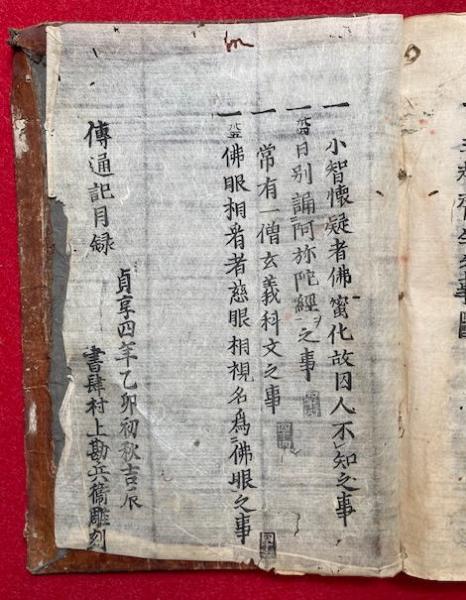 一 小智懷疑者佛蜜化故因人不知之事
一 日別誦阿弥陀經ヲ之事
一 常有一僧玄義科文之事
一 佛眼相看者慈眼相視名為佛眼之事
貞享四年乙卯初秋吉辰
書肆村上勘兵衛雕刻
傳通記目録